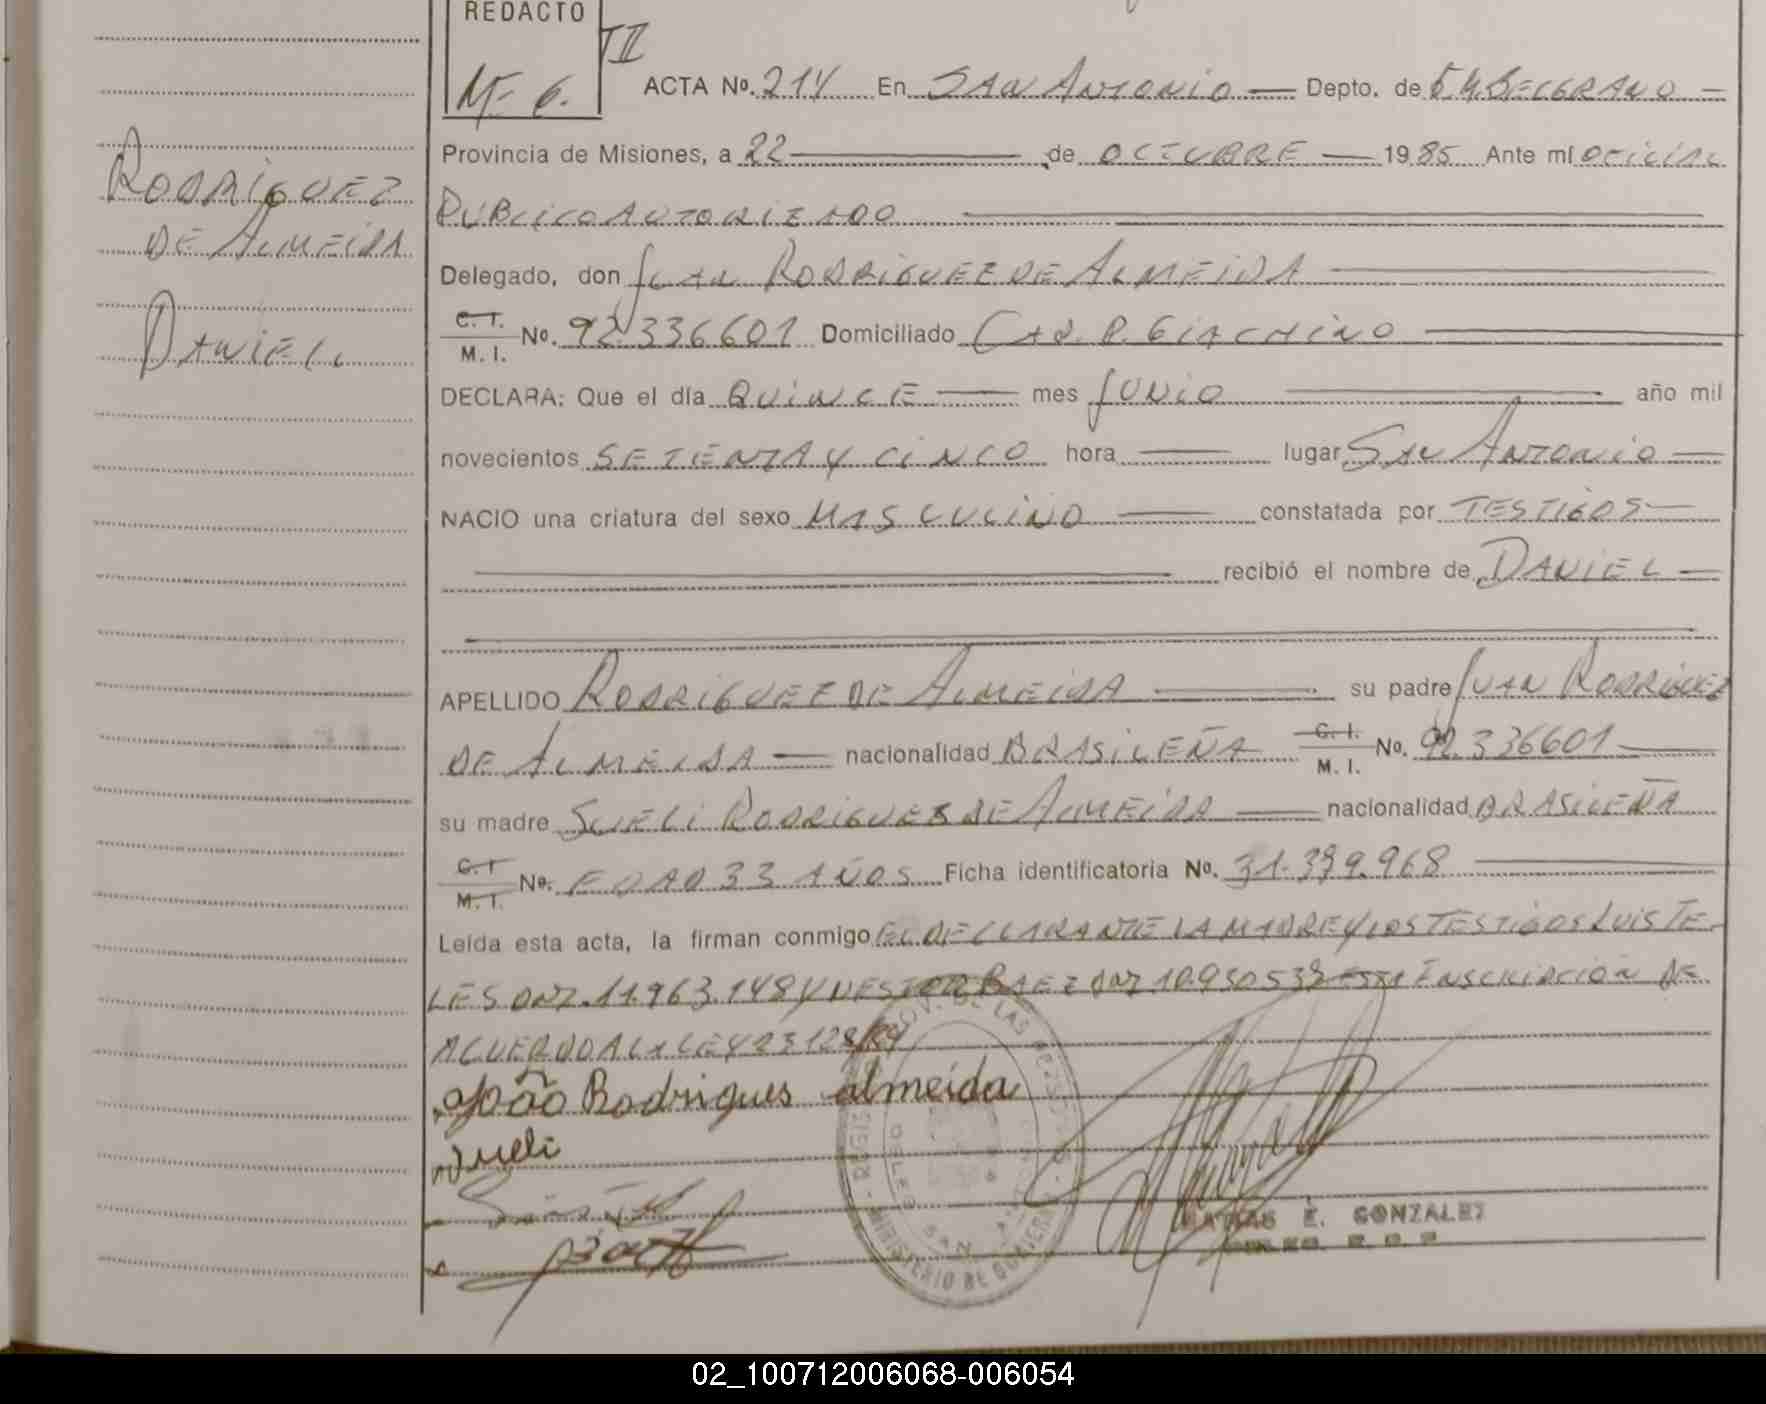 REDACTO
II
M- 6.
ACTA No. 214 En SAN ANTONIO — Depto. de G. M. BELGRANO —
Provincia de Misiones, a 22 — de OCTUBRE — 1985 Ante mí OFICIAL
PUBLICO AUTORIZADO
Delegado, don JUAN RODRIGUEZ DE ALMEIDA
C. I.
M. I. No. 92.336601 Domiciliado CAP. P. GIACHINO
DECLARA: Que el día QUINCE — mes JUNIO — año mil
novecientos SETENTA Y CINCO hora — lugar SAN ANTONIO —
NACIO una criatura del sexo MASCULINO — constatada por TESTIGOS —
recibió el nombre de DANIEL —
APELLIDO RODRIGUEZ DE ALMEIDA — su padre JUAN RODRIGUEZ
DE ALMEIDA — nacionalidad BRASILEÑA C. I.
M. I. No. 92.336601 —
su madre SUELI RODRIGUES DE ALMEIDA — nacionalidad BRASILEÑA
C. I
M. I. No. EDAD 33 AÑOS Ficha identificatoria No. 31.399.968
Leída esta acta, la firman conmigo EL DECLARANTE LA MADRE Y LOS TESTIGOS LUIS TE-
LES DNI. 11.963.148 Y NESTOR BAEZ DNI 10.950539 ESTA INSCRIPCION DE
ACUERDO A LA LEY 23128/84
João Rodrigues almeida
Sueli
E. GONZALEZ
RODRIGUEZ
DE ALMEIDA
DANIEL
02_100712006068-006054